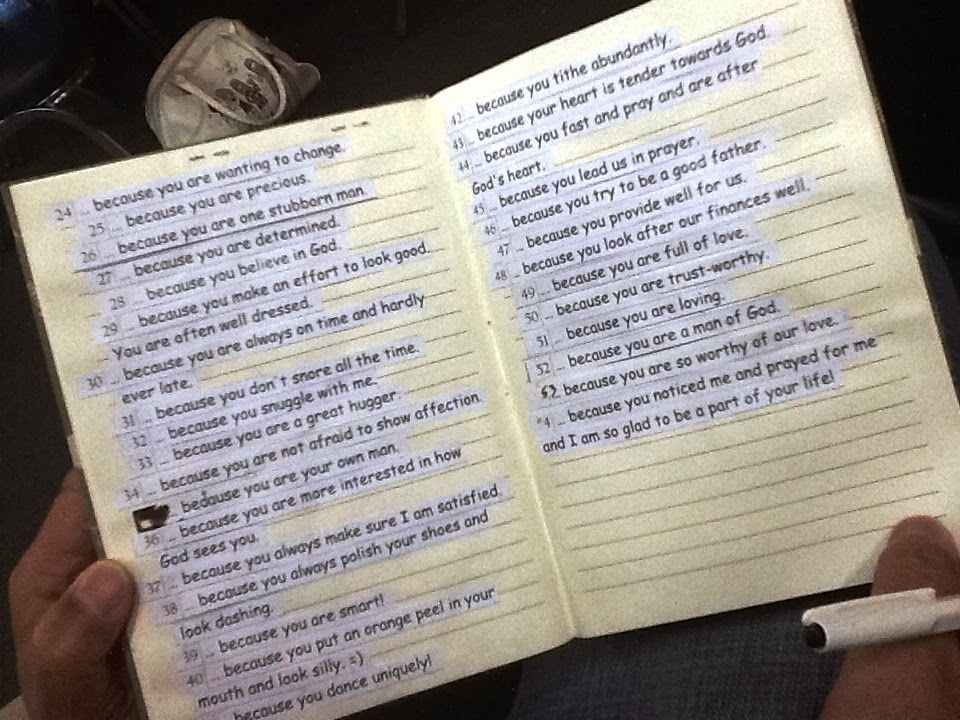 24 ... because you are wanting to change.
25 ... because you are precious.
26 ... because you are one stubborn man.
27 ... because you are determined.
28 ... because you believe in God.
29 ... because you make an effort to look good.
You are often well dressed.
30 ... because you are always on time and hardly
ever late.
31 ... because you don't snore all the time.
32 ... because you snuggle with me.
33 ... because you are a great hugger.
34 ... because you are not afraid to show affection.
... because you are your own man.
36 ... because you are more interested in how
God sees you.
37 ... because you always make sure I am satisfied.
38 ... because you always polish your shoes and
look dashing.
39 ... because you are smart!
40 ... because you put an orange peel in your
mouth and look silly. =)
because you dance uniquely!
42 ... because you tithe abundantly.
43 ... because your heart is tender towards God.
44 ... because you fast and pray and are after
God's heart.
45 ... because you lead us in prayer.
46 ... because you try to be a good father.
47 ... because you provide well for us.
48 ... because you look after our finances well.
49 ... because you are full of love.
50 ... because you are trust-worthy.
51 ... because you are loving.
52 ... because you are a man of God.
53 because you are so worthy of our love.
4 ... because you noticed me and prayed for me
and I am so glad to be a part of your life!